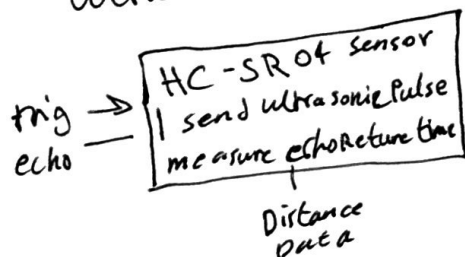 trig
echo
HC-SR04 sensor
| send ultrasonic Pulse
measure echoReture time
Distance
Data